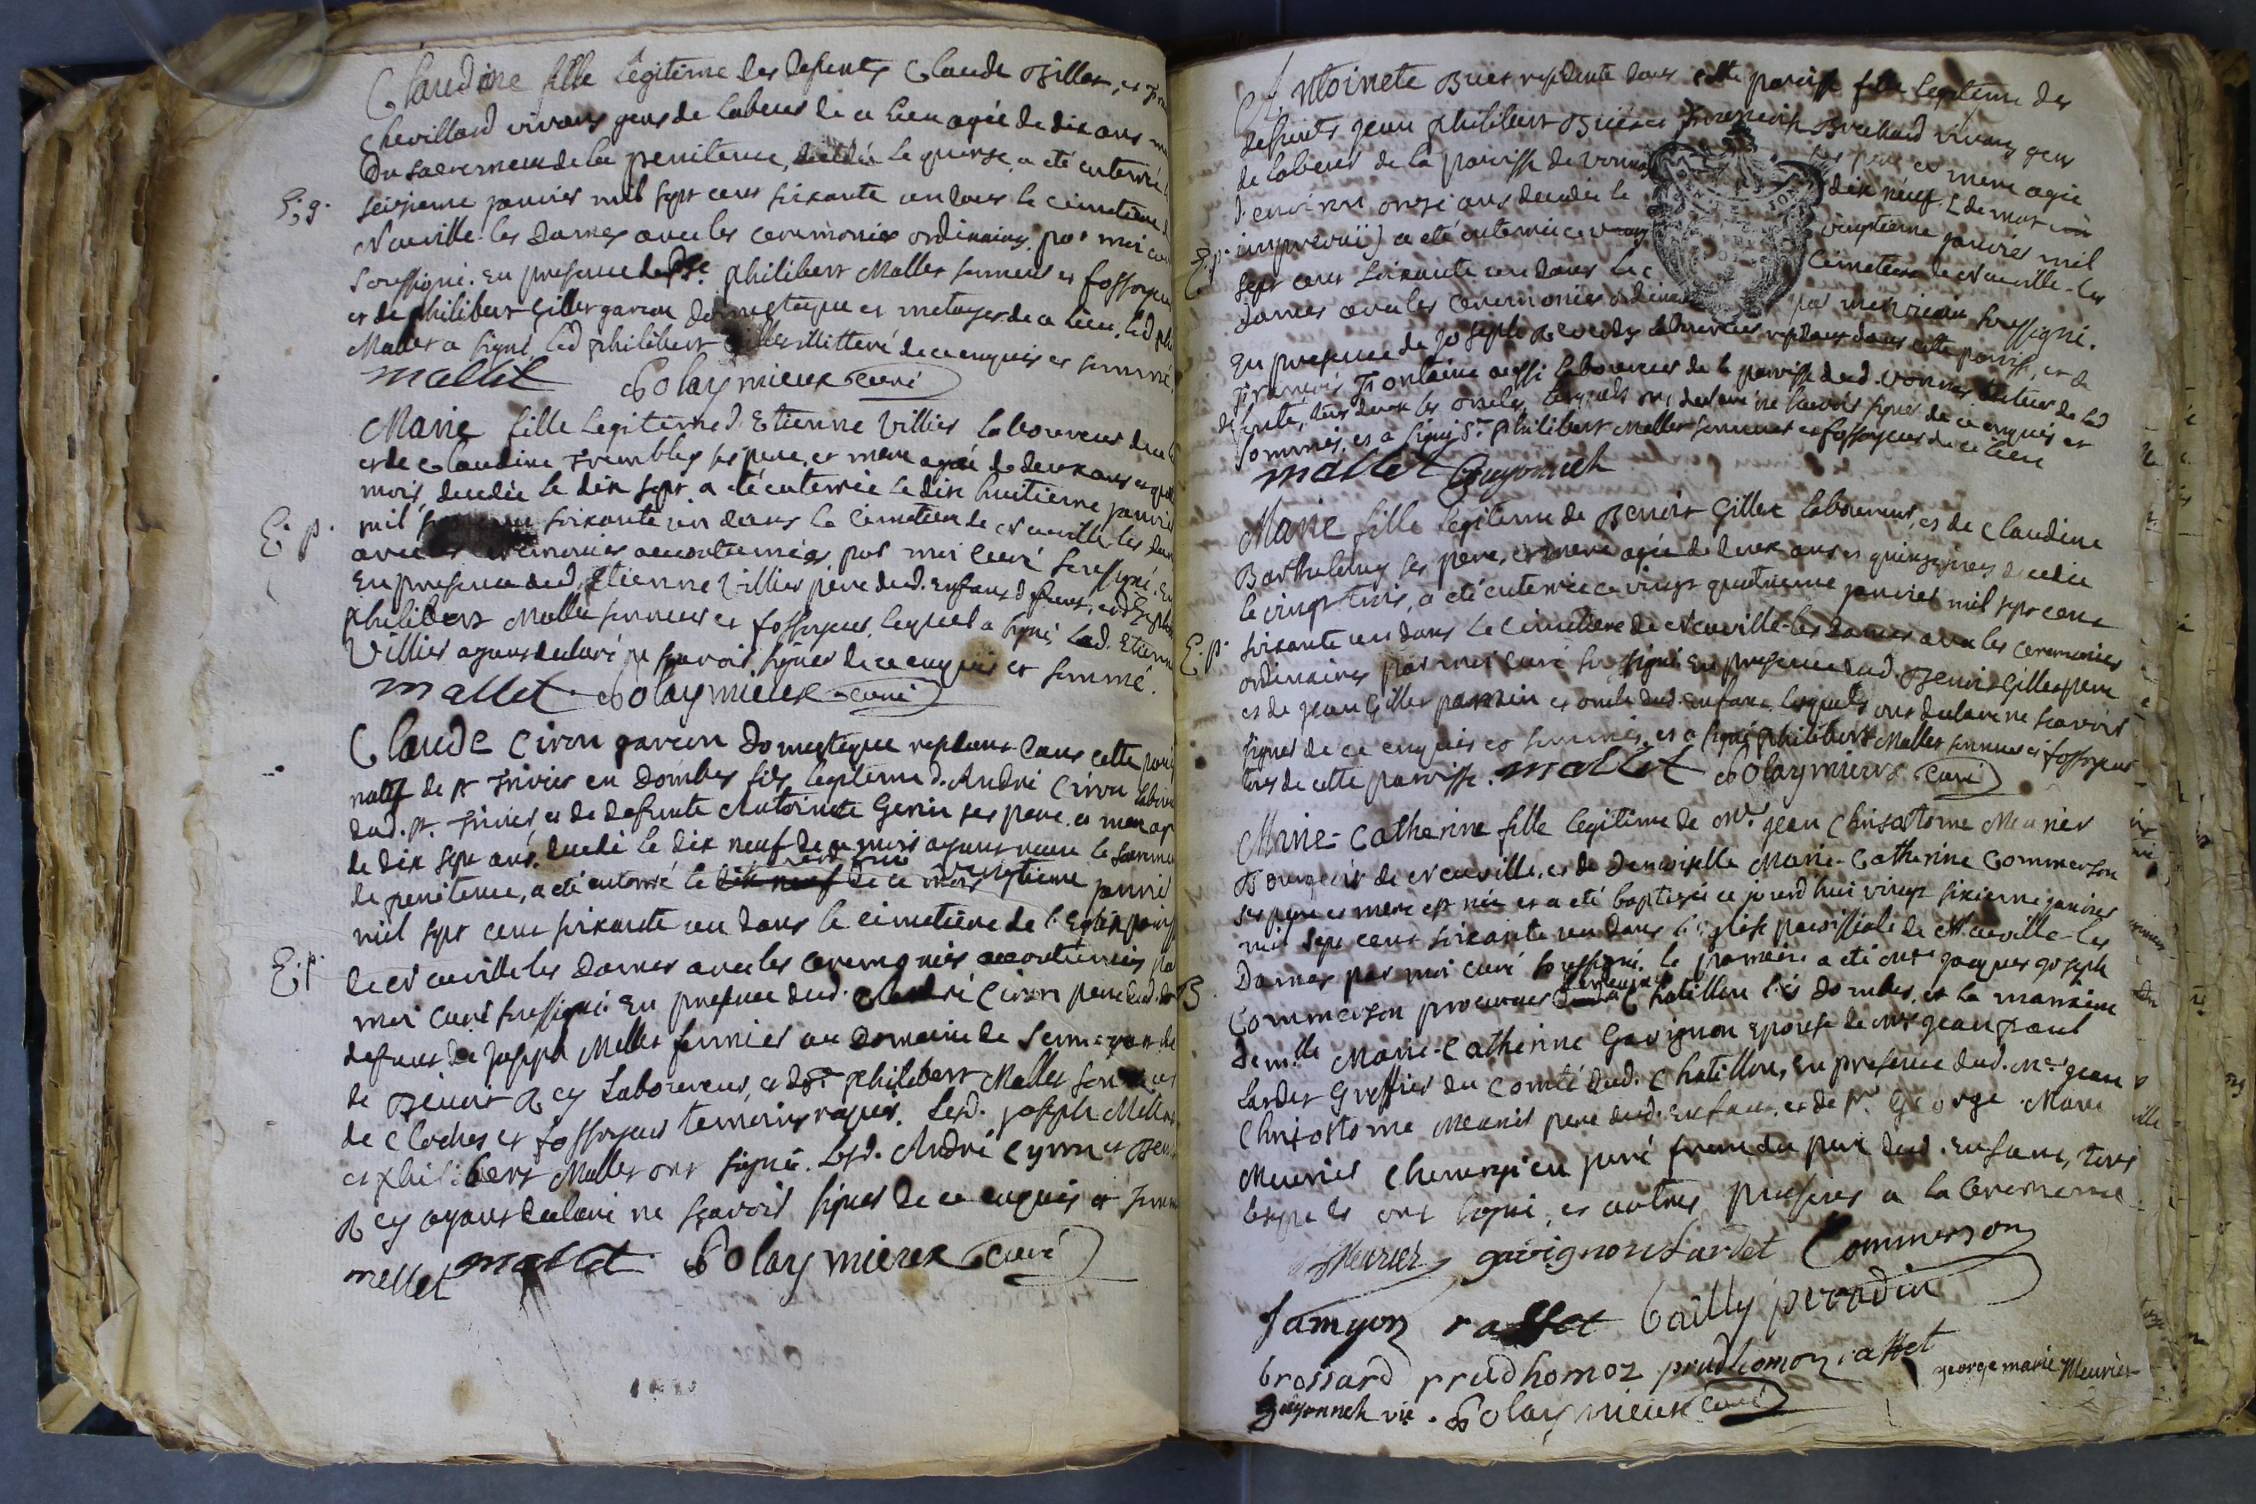 Claudine fille legitime des defunts Claude Billet, et
Chevillard vivans gens de labeur de ce lieu agée de dix ans
du sacrement de la penitence, decedée le quinze, a eté enterrée
E. g. seizieme janvier mil sept cent soixante un dans le cimetiere
Neuville les Dames avec les ceremonies ordinaires, par moi
soussigné. En presence de Philibert Mallet sonneur et fossoyeur
et de philibert Gillet garcon domestique et metayer de ce lieu, led
Mallet a signé, led philibert Gillet illitteré de ce enquis et sommé.
mallet Polaymieux curé
Marie fille legitime d'Etienne Villier laboureur de ce
et de Claudine Trembley ses pere, et mere agée de deux ans et
mois, decedée le dix sept a été enterrée le dix huitieme janvier
E. p. mil sept cent soixante un dans le cimetiere de Neuville les
avec les ceremonies accoutumées par moi curé soussigné.
En presence dud. Etienne Villier pere dud. enfant defunt, et de
philibert Mallet sonneur et fossoyeur, lequel a signé led. Etienne
Villier ayant declaré ne sçavoir signer de ce enquis et sommé.
mallet Polaymieux curé
Claude Ciron garcon domestique residant dans cette
natif de St Trivier en Dombes fils legitime d'André Ciron
dud. St. Trivier et de defunte Antoinete Genin ses pere et mere
de dix sept ans, decedé le dix neuf de ce mois ayant recu le
de penitence, a eté enterré le dix neuf de ce mois vingtieme janvier
mil sept cent soixante un dans le cimetiere de l'Eglise
E. p. de Neuville les Dames avec les ceremonies accoutumées
moi curé soussigné. En presence dud. André Ciron pere dud.
defunt, de joseph Mellet fermier au domaine de
de Benoit Rey laboureur, et de Sr philibert Mallet sonneur
de cloches et fossoyeur temoins requis. Lesd. joseph Mellet
et philibert Mallet ont signé. Lesd. André Cyron et
Rey ayant declaré ne sçavoir signer de ce enquis et
mellet mallet Polaymieux curé
Antoinete Buer residente dans cette paroisse fille legitime des
defunts jean philibert Buer et Francoise Brechard vivans gens
de labeur de la paroisse de Vonnas ses pere et mere agée
d'environ onze ans decedée le dix neuf
E. p. imprevuë) a eté enterrée ce vingtieme janvier mil
sept cent soixante un dans le cimetiere de Neuville-les
Dames avec les ceremonies ordinaires par moi soussigné.
En presence de joseph laboureur residant dans cette paroisse, et de
Francois Fontaine aussi laboureur de la paroisse dud. Vonnas tuteur de lad
defunte, tous deux ses oncles, lesquels ont declaré ne sçavoir signer de ce enquis et
sommés, et a signé Sr. Philibert Mallet sonneur et fossoyeur de ce lieu
mallet Guyonneh
Marie fille legitime de Benoit Gillet laboureur, et de Claudine
Barthelemy ses pere, et mere agée de deux ans et quinze jours decedée
le vingt trois, a eté enterrée ce vingt quatrieme janvier mil sept cent
E. p. soixante un dans le cimetiere de Neuville-les Dames avec les ceremonies
ordinaires par moi curé soussigné. En presence dud. Benoit Gillet pere
et de jean Gillet parrain et oncle dud. enfant, lesquels ont declaré ne sçavoir
signer de ce enquis et sommés, et a signé philibert Mallet sonneur et fossoyeur
de cette paroisse. mallet Polaymieux curé
Marie-Catherine fille legitime de Mr. jean Chrisostome Meurier
Bourgeois de Neuville, et de demoiselle Marie-Catherine Commerson
ses pere et mere est née et a eté baptisée ce jourd'hui vingt sixieme janvier
mil sept cent soixante un dans l'Eglise paroissiale de Neuville-les
Dames par moi curé soussigné. le parrain a eté jacques joseph
B. Commerson procureur Chatillon les Dombes, et la marraine
demlle Marie-Catherine Gavignon epouse de jean paul
Lardet Greffier du Comté dud. Chatillon, En presence dud. Mr. jean
Chrisostome Meurier pere dud. enfant, et de Sr. George Marie
Meurier chirurgien juré frere du pere dud. enfant, tous
lesquels ont signé, et autres presens a la ceremonie
Meurier gavignon Lardet Commerson
Jamyon rasset bailly perrodin
brossard prudhomoz prudhomoz rasset
george marie Meurier
Guyonneh vic. Polaymieux curé